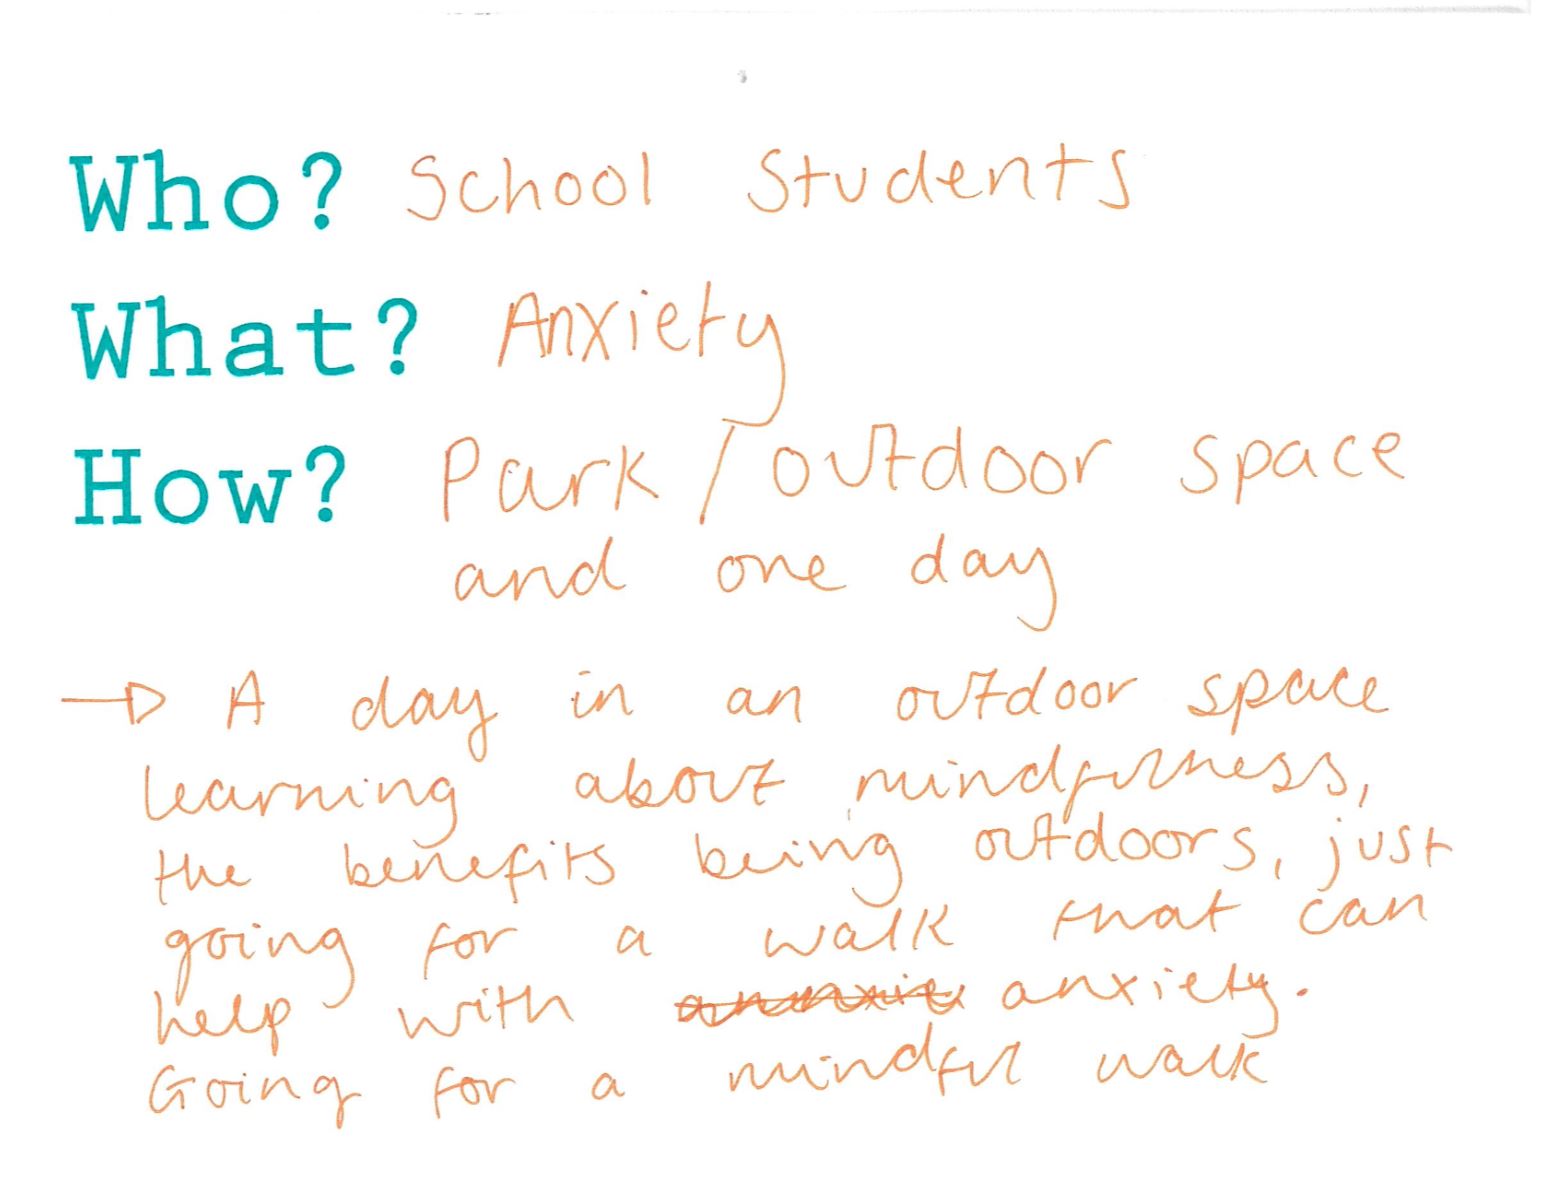 Who? School Students
What? Anxiety
How? Park / outdoor space
and one day
→ A day in an outdoor space
learning about mindfulness,
the benefits being outdoors, just
going for a walk that can
help with anxiety.
Going for a mindful walk